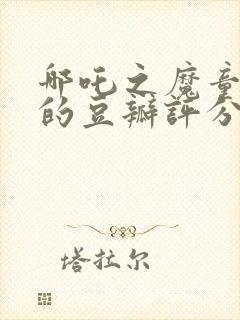 哪吒之魔童
的豆瓣评分
塔拉尔